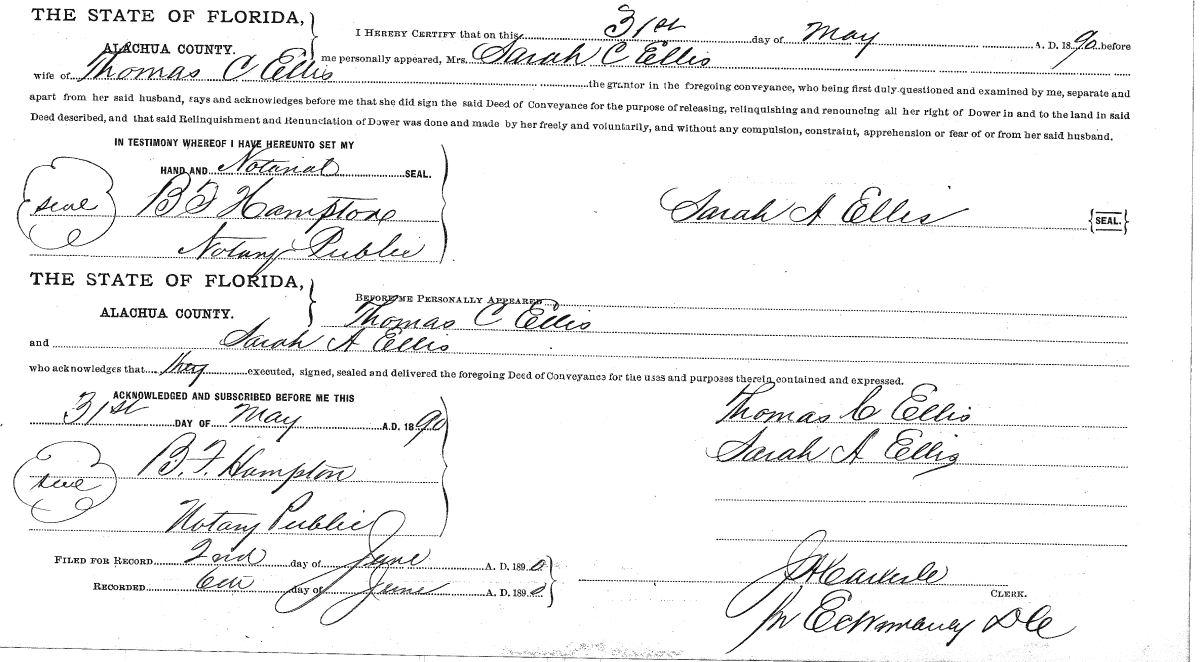 THE STATE OF FLORIDA,
ALACHUA COUNTY.
I HEREBY CERTIFY that on this 31st day of May A. D. 1890 before
me personally appeared, Mrs. Sarah C Ellis
wife of Thomas C Ellis the grantor in the foregoing conveyance, who being first duly questioned and examined by me, separate and
apart from her said husband, says and acknowledges before me that she did sign the said Deed of Conveyance for the purpose of releasing, relinquishing and renouncing all her right of Dower in and to the land in said
Deed described, and that said Relinquishment and Renunciation of Dower was done and made by her freely and voluntarily, and without any compulsion, constraint, apprehension or fear of or from her said husband.
IN TESTIMONY WHEREOF I HAVE HEREUNTO SET MY
HAND AND Notarial SEAL.
seal B F Hampton
Sarah A Ellis {SEAL.}
Notary Public
THE STATE OF FLORIDA,
ALACHUA COUNTY.
BEFORE ME PERSONALLY APPEARED
Thomas C Ellis
and Sarah A Ellis
who acknowledges that they executed, signed, sealed and delivered the foregoing Deed of Conveyance for the uses and purposes therein contained and expressed.
ACKNOWLEDGED AND SUBSCRIBED BEFORE ME THIS
31st DAY OF May A.D. 1890
Thomas C Ellis
Sarah A Ellis
seal B. F. Hampton
Notary Public
FILED FOR RECORD 2nd day of June A. D. 1890
RECORDED 6th day of June A. D. 1890
CLERK.
DC